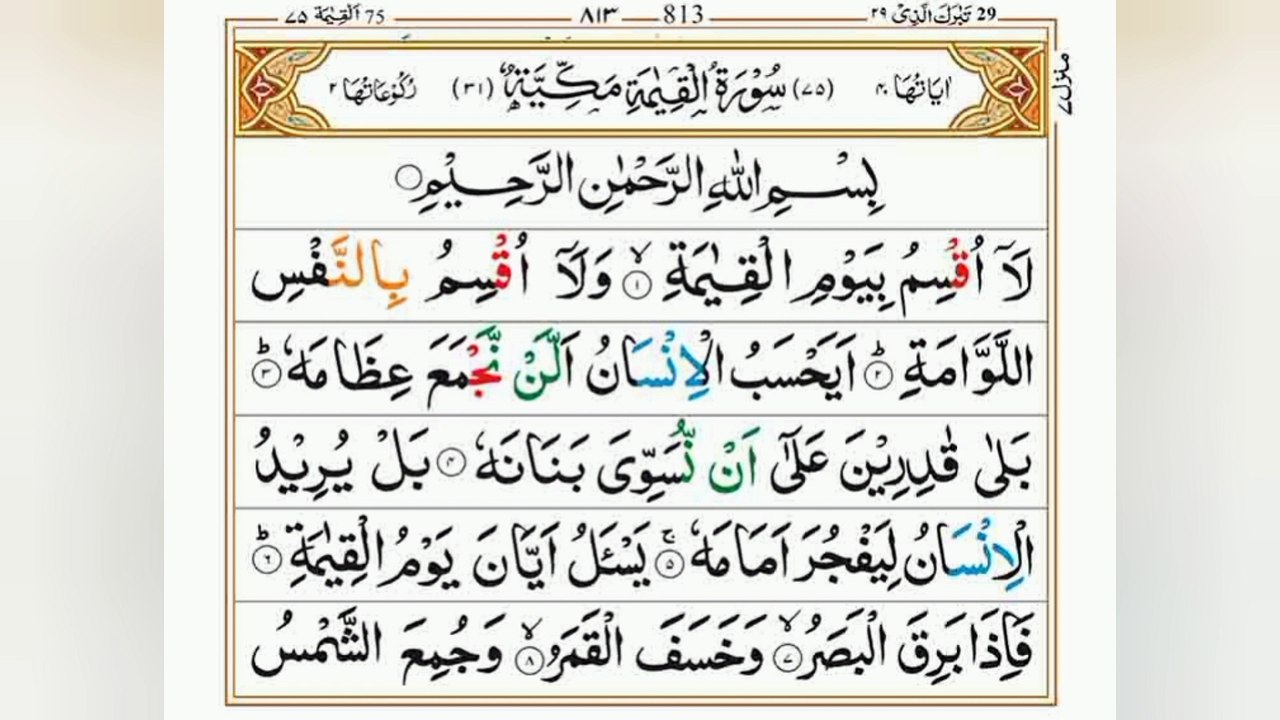 29 تَبٰرَكَ الَّذِیْ ۲۹ 813 ۸۱۳ 75 اَلْقِيٰمَة ۷۵
اٰيَاتُهَا ۴۰ (۷۵) سُوْرَةُ الْقِيٰمَةِ مَكِّيَّةٌ (۳۱) رُكُوْعَاتُهَا ۲
منزل ۷
بِسْمِ اللّٰهِ الرَّحْمٰنِ الرَّحِيْمِ
لَآ اُقْسِمُ بِيَوْمِ الْقِيٰمَةِ ۙ‏﴿۱﴾ وَلَآ اُقْسِمُ بِالنَّفْسِ
اللَّوَّامَةِ ؕ‏﴿۲﴾ اَيَحْسَبُ الْاِنْسَانُ اَلَّنْ نَّجْمَعَ عِظَامَهٗ ؕ‏﴿۳﴾
بَلٰى قٰدِرِيْنَ عَلٰٓى اَنْ نُّسَوِّىَ بَنَانَهٗ ﴿۴﴾ بَلْ يُرِيْدُ
الْاِنْسَانُ لِيَفْجُرَ اَمَامَهٗ ۚ‏﴿۵﴾ يَسْـَٔلُ اَيَّانَ يَوْمُ الْقِيٰمَةِ ؕ‏﴿۶﴾
فَاِذَا بَرِقَ الْبَصَرُ ۙ‏﴿۷﴾ وَخَسَفَ الْقَمَرُ ۙ‏﴿۸﴾ وَجُمِعَ الشَّمْسُ